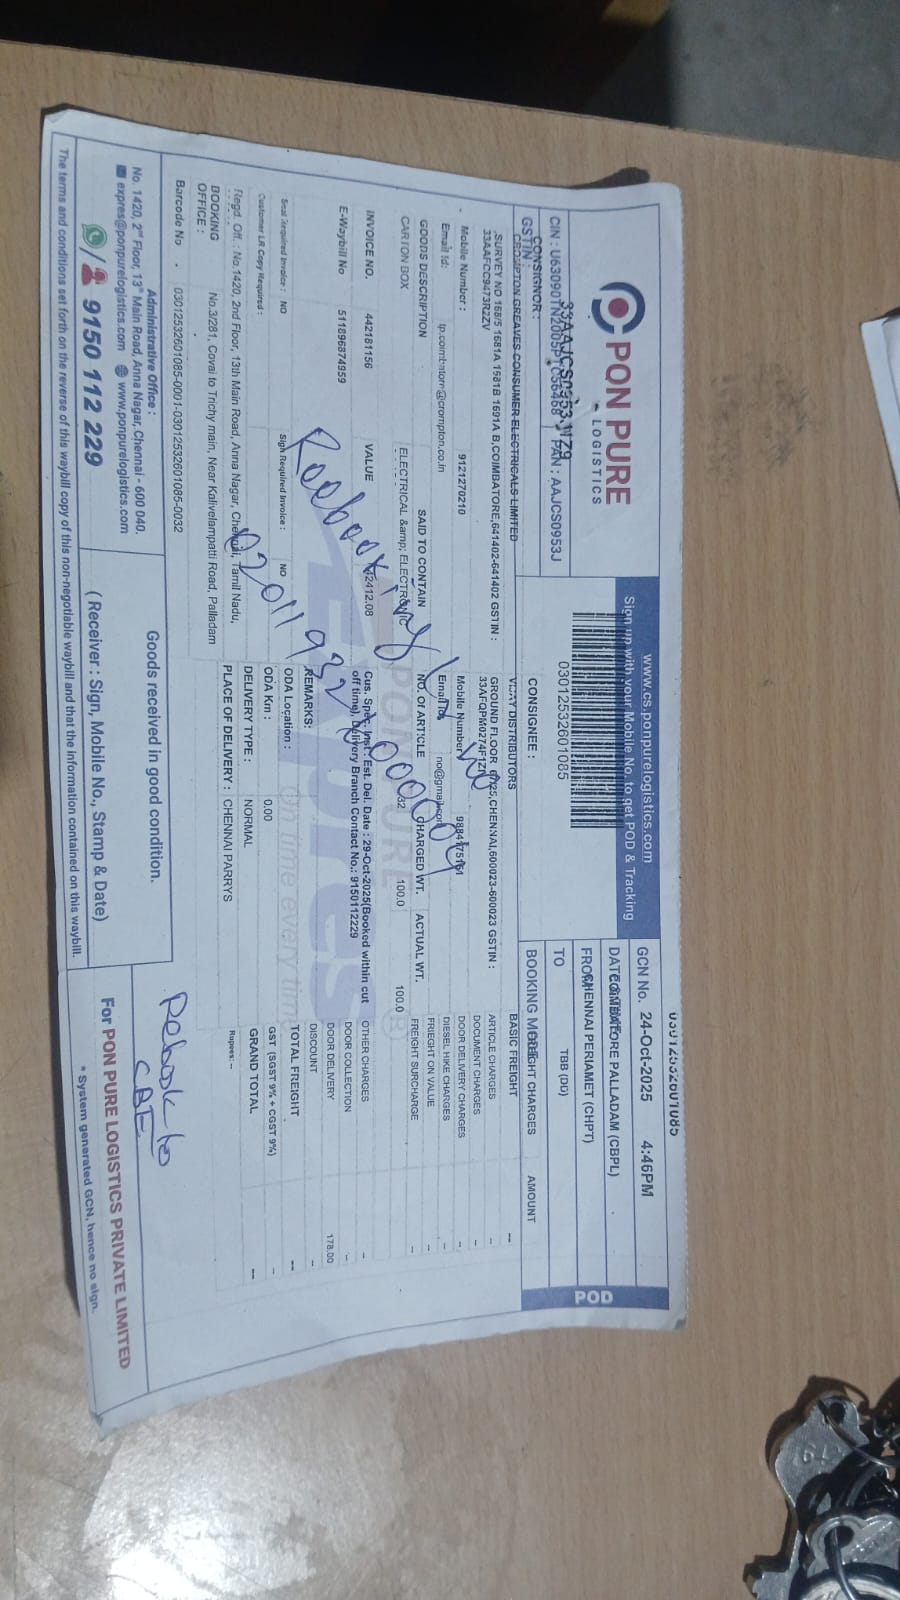 PON PURE
LOGISTICS
CIN : U63090TN2005PTC56468 PAN : AAJCS0953J
33AAJCS0953J1Z9
www.cs.ponpurelogistics.com
Sign up with your Mobile No. to get POD & Tracking
03012532601085
03012532601085
GCN No. 24-Oct-2025 4:46PM
DATE & TIME
FROM COIMBATORE PALLADAM (CBPL)
TO CHENNAI PERIAMET (CHPT)
TBB (DD)
POD
CONSIGNOR :
GSTIN :
CROMPTON GREAVES CONSUMER ELECTRICALS LIMITED
,SURVEY NO 168/5 1681A 1581B 1691A B,COIMBATORE,641402-641402 GSTIN :
33AAFCC9473R2ZV
Mobile Number : 9121270210
Email Id: tp.coimbatore@crompton.co.in
CONSIGNEE :
DISTRIBUTORS
GROUND FLOOR CHENNAI,600023-600023 GSTIN :
Mobile Number
Email Id: no@gmail.com
BOOKING MODE
FREIGHT CHARGES AMOUNT
BASIC FREIGHT --
ARTICLE CHARGES --
DOCUMENT CHARGES --
DOOR DELIVERY CHARGES --
DIESEL HIKE CHARGES --
FRIEGHT ON VALUE --
FREIGHT SURCHARGE --
OTHER CHARGES --
DOOR COLLECTION --
DOOR DELIVERY 178.00
DISCOUNT --
TOTAL FREIGHT --
GST (SGST 9% + CGST 9%) --
GRAND TOTAL --
Rupees: --
GOODS DESCRIPTION SAID TO CONTAIN NO. Of ARTICLE CHARGED WT. ACTUAL WT.
CARTON BOX ELECTRICAL &amp; ELECTRONIC 32 100.0 100.0
INVOICE NO. 442181156 VALUE 12412.08
E-Waybill No 511896874959
Cus. Spec. Inst.: Est. Del. Date : 29-Oct-2025(Booked within cut
off time), Delivery Branch Contact No.: 9150112229
REMARKS:
Seal Required Invoice : NO Sign Required Invoice : NO
Customer LR Copy Required :
ODA Location :
ODA Km : 0.00
DELIVERY TYPE : NORMAL
PLACE OF DELIVERY : CHENNAI PARRYS
Regd. Off. : No.1420, 2nd Floor, 13th Main Road, Anna Nagar, Chennai, Tamil Nadu,
BOOKING OFFICE : No.3/281, Covai to Trichy main, Near Kalivelampatti Road, Palladam
Barcode No . 03012532601085-0001-03012532601085-0032
Rebook to
CBE
Administrative Office :
No. 1420, 2nd Floor, 13th Main Road, Anna Nagar, Chennai - 600 040.
expres@ponpurelogistics.com www.ponpurelogistics.com
9150 112 229
Goods received in good condition.
( Receiver : Sign, Mobile No., Stamp & Date)
For PON PURE LOGISTICS PRIVATE LIMITED
* System generated GCN, hence no sign.
The terms and conditions set forth on the reverse of this waybill copy of this non-negotiable waybill and that the information contained on this waybill.